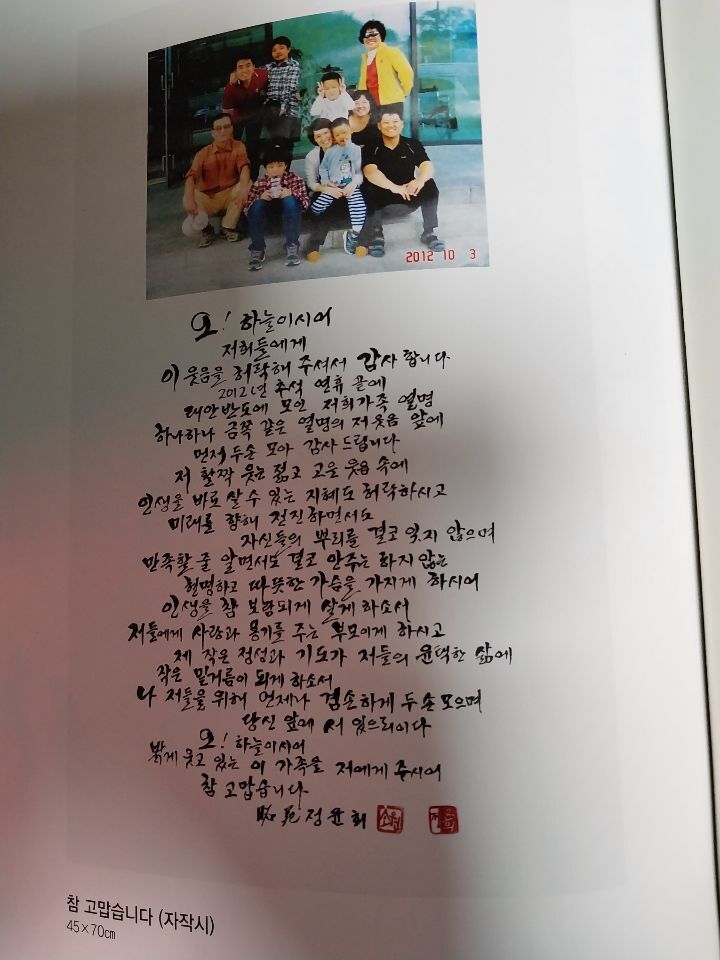 2012 10 3
오! 하늘이시어
저희들에게
이 웃음을 허락해 주셔서 감사 합니다
2012년 추석 연휴 끝에
태안반도에 모인 저희가족 열명
하나하나 금쪽 같은 열명의 저 웃음 앞에
먼저 두손 모아 감사드립니다
저 활짝 웃는 젊고 고운 웃음 속에
인생을 바로 살 수 있는 지혜도 허락하시고
미래를 향해 전진하면서도
자신들의 뿌리를 결코 잊지 않으며
만족할 줄 알면서도 결코 안주는 하지 않는
현명하고 따뜻한 가슴을 가지게 하시어
인생을 참 보람되게 살게 하소서
저들에게 사랑과 용기를 주는 부모이게 하시고
제 작은 정성과 기도가 저들의 윤택한 삶에
작은 밑거름이 되게 하소서
나 저들을 위해 언제나 겸손하게 두손 모으며
당신 앞에 서 있으리이다
오! 하늘이시어
밝게 웃고 있는 이 가족을 저에게 주시어
참 고맙습니다
정윤희
참 고맙습니다 (자작시)
45×70㎝